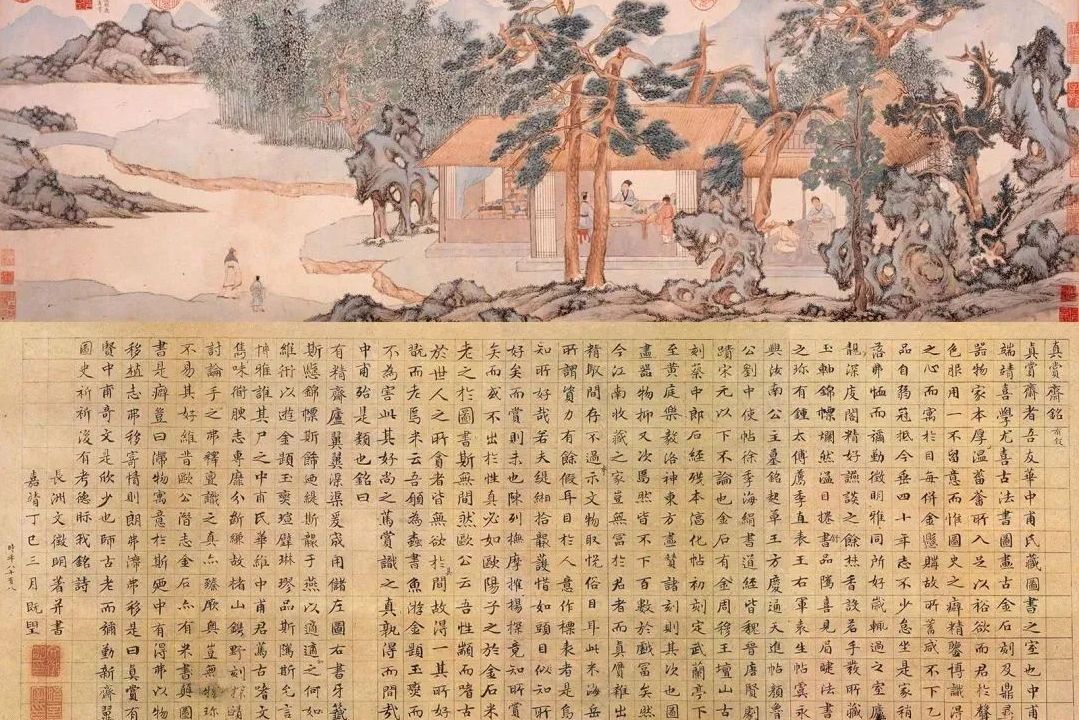 真賞齋銘有敘
真賞齋者吾友華中甫氏藏圖書之室也中甫
端靖喜學尤喜古法書圖畫古金石刻及鼎彝
器物家本厚溫菑畬所入足以裕欲而君於聲
色服用一不留意而惟圖史之癖精鑒博識得
之心而寓於目每併金懸購故所蓄咸不下乙
品自弱冠抵今垂四十年志不少怠坐是家稍
落弗恤而彌勤徵明雅同所好歲輒過之室廬
靚深庋閣精好讌談之餘焚香設茗手發所藏
玉軸錦幖爛然溢目捲舒品隲喜見眉睫法書
之珍有鍾太傅薦季直表王右軍袁生帖虞永
興汝南公主墓銘起草王方慶通天進帖顏魯
公劉中使帖徐季海絹書道經皆魏晉唐賢劇
蹟宋元以下不論也金石有周穆王壇山古
刻蔡中郎石經殘本淳化帖初刻定武蘭亭下
至黃庭樂毅洛神東方畫贊諸刻則其次也圖
畫器物抑又次焉然皆不下百數於戲富矣然
今江南收藏之家豈無富於君者而真贗雜出
精駁間存不過夸示文物取悅俗目耳此米海岳
所謂資力有餘假耳目於人意作標表者是焉
知所好哉若夫緹緗拾襲護惜如頭目似知所
好矣而賞則未也陳列撫摩揚探竟知所賞
矣而或不出於性真必如歐陽子之於金石米
老之於圖書斯無間然歐公云吾性顓而嗜古
於世人之所貪者皆無欲於其間故得一其所好
翫而老焉米云吾願為蠹書魚游金題玉躞而
不為害此其好尚之篤賞識之真孰得而間哉
中甫殆是類也銘曰
有精齋廬翼翼渠渠爰宬用儲左圖右書牙籤
斯懸錦幖斯飾迺緹斯襲于燕以適適之何如
維衎以遊金題玉躞瑄璧琳璆品斯隲斯允言
博雅誰其尸之中甫氏華維中甫君篤古嗜文
雋味衜腴志專靡分斷縑故楮山鐫野刻探賾
討論手之弗釋亶識之真亦臻厥奧豈無物珍
不易其好維昔歐公階志金石亦有米書與圖
書是癖豈曰滯物寓意於斯中有得弗以物
移植志弗移寄情則朗弗滯弗移是曰真賞
賢中甫奇文是欣少也師古老而彌勤新齋翼
圖史祈祈後有考德眎我銘詩
長洲文徵明著并書
嘉靖丁巳三月既望
時年八十有八